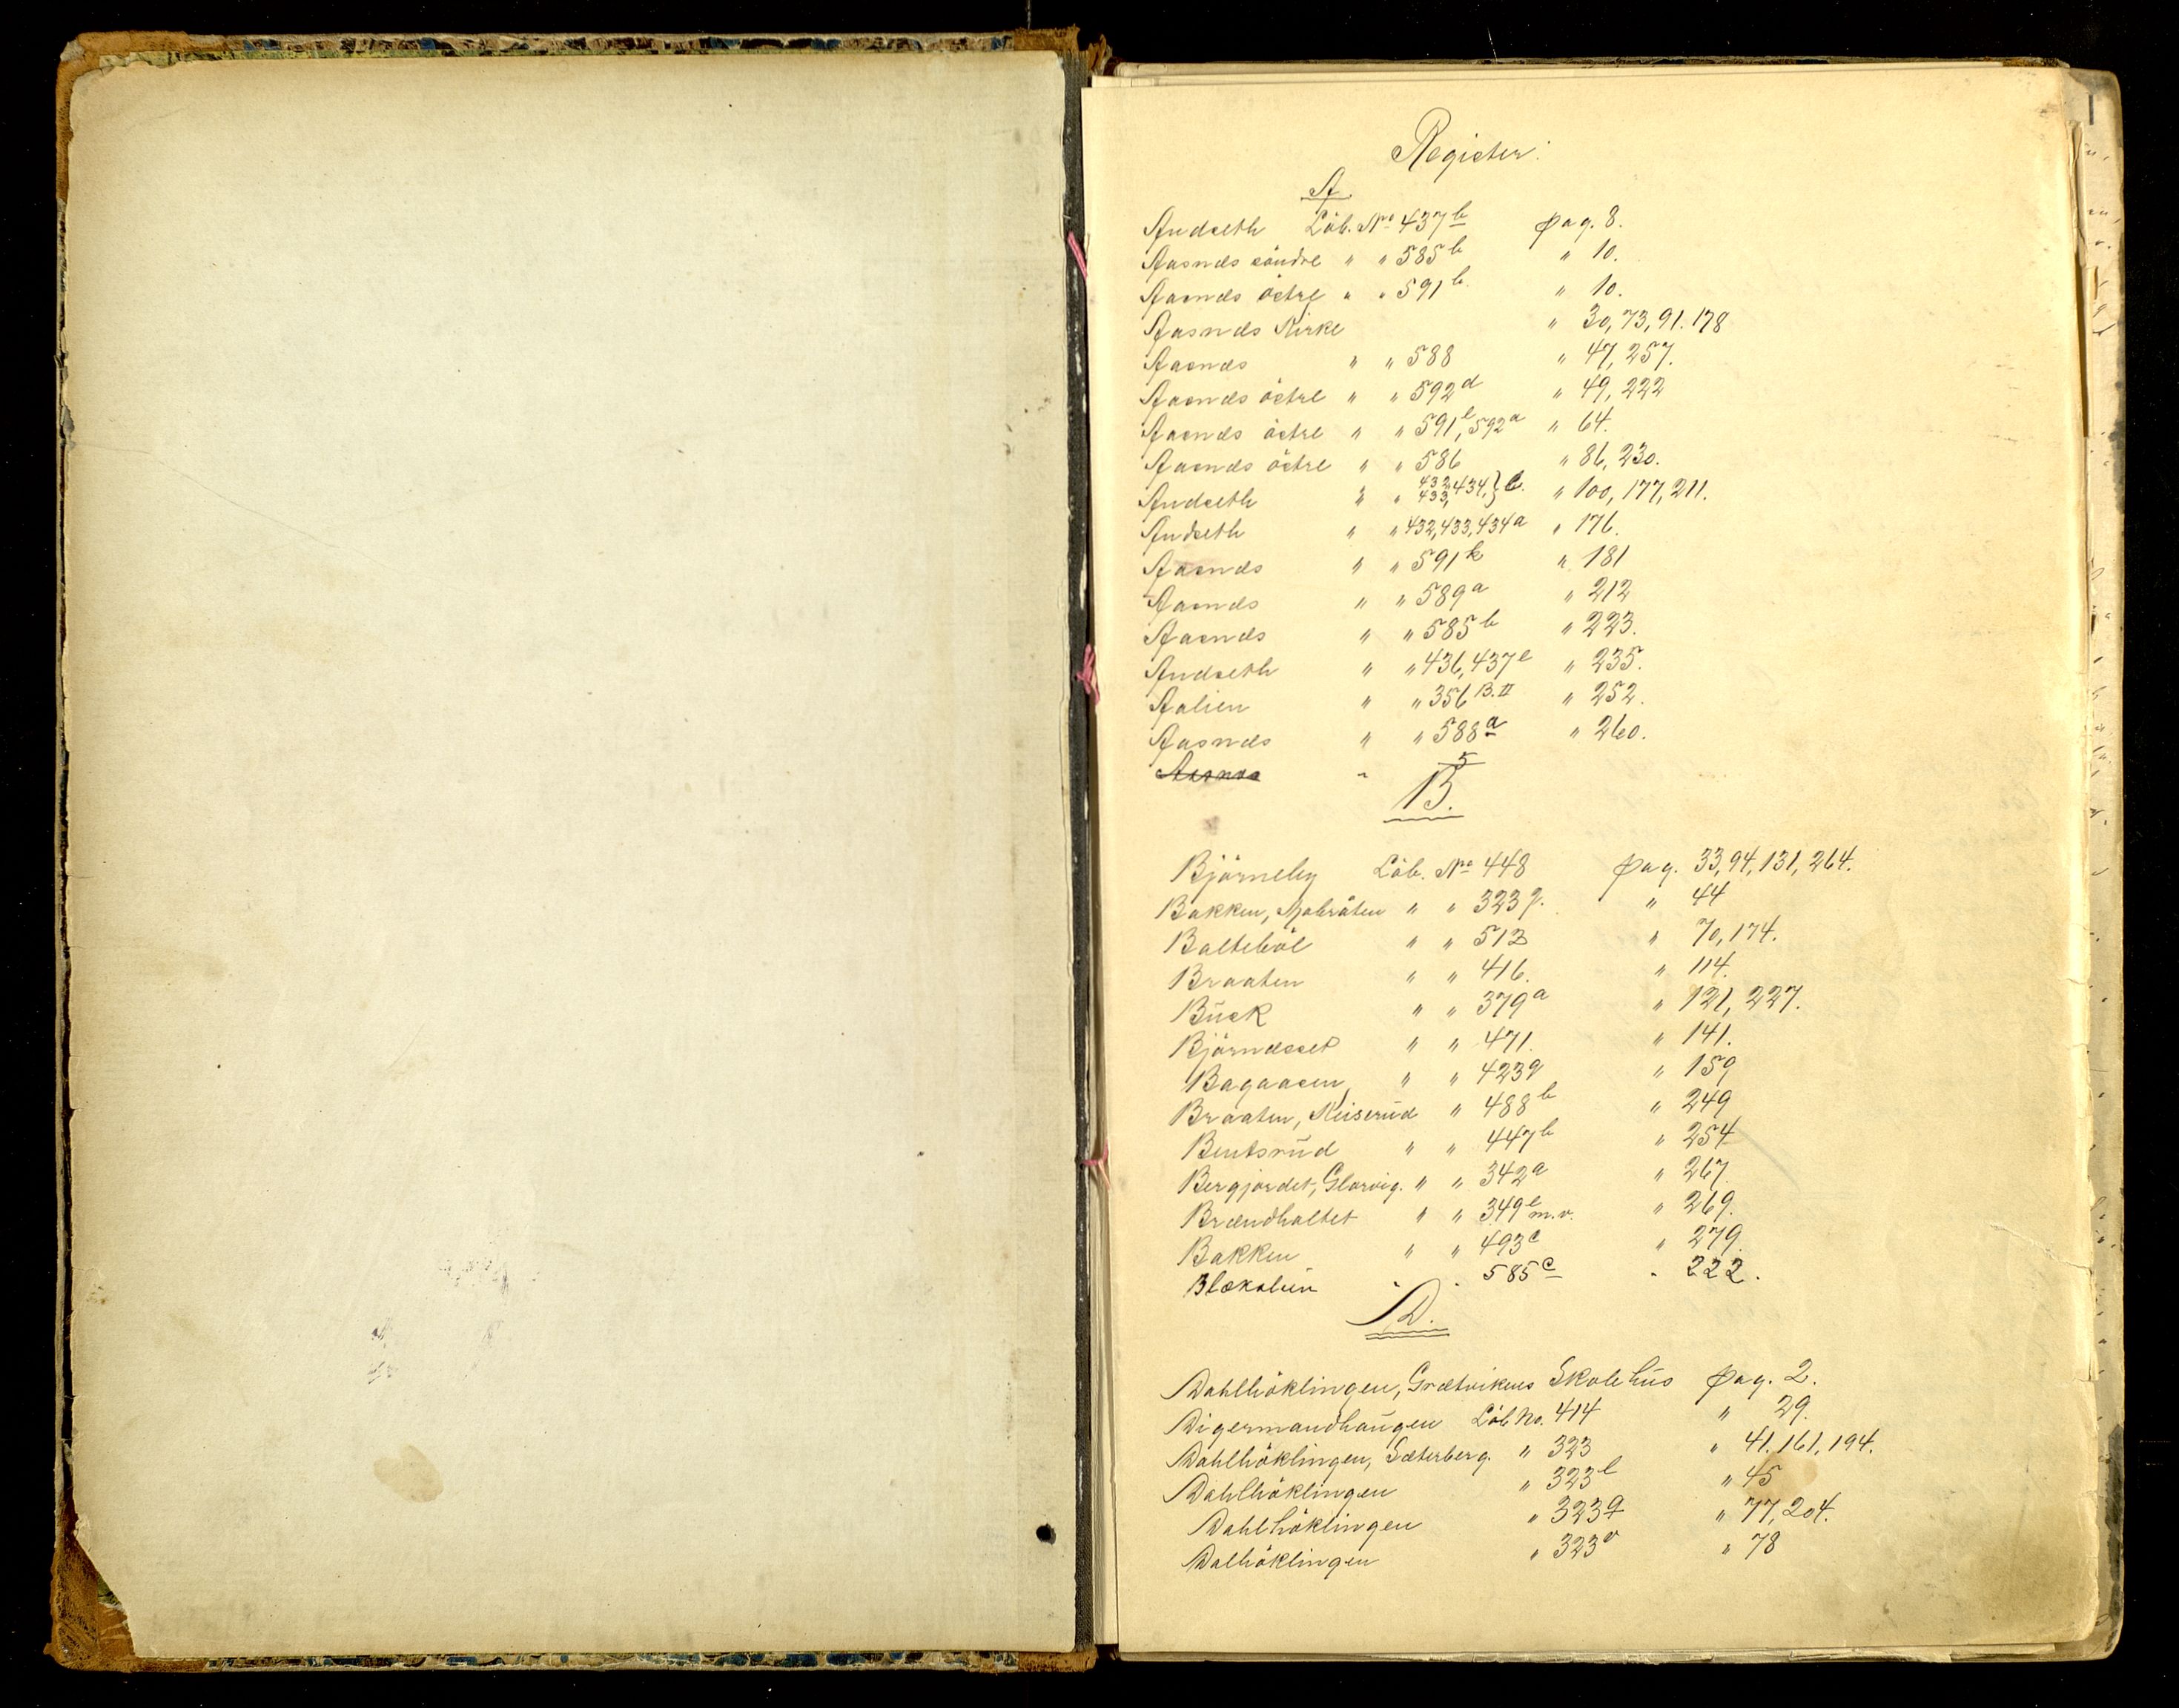 Register:
A.
Andseth Löb. No 437 b pag. 8.
Aasnæs söndre " " 585 b " 10.
Aasnæs östre " " 591 b. " 10.
Aasnæs Kirke " 30, 73, 91. 178
Aasnæs " " 588 " 47, 257.
Aasnæs östre " " 592 d " 49, 222
Aasnæs östre " " 591 l, 592 a " 64.
Aasnæs östre " " 586 " 86, 230.
Andseth " " 432, 433, 434, } b. " 100, 177, 211.
Andseth " " 432, 433, 434 a " 176.
Aasnæs " " 591 k " 181
Aasnæs " " 589 a " 212
Aasnæs " " 585 b " 223.
Andseth " " 436, 437 e " 235.
Aalien " " 356 B. II " 252.
Aasnæs " " 588 a " 260.
Aasnæs " 5
B.
Björneby Löb. No 448 pag. 33, 94, 131, 264.
Bakken, " " 323 q. " 44
Balteböl " " 512 " 70, 174.
Braaten " " 416. " 114.
Busk " " 379 a " 121, 227.
Björnæset " " 471. " 141.
Bagaasen, " " 423 q " 159
Braaten, Keiserud " 488 b " 249
Bentsrud " " 447 b " 254
Bergjordet, Glorvig. " " 342 a " 267.
Brændholtet " " 349 l m. v. " 269.
Bakken " " 493 c " 279.
Blekolien " " 585 c " 222.
D.
Dahlhöklingen, Grætvikens Skolehus pag. 2.
Digermandhaugen Löb No. 414 " 29.
Dahlhöklingen, Sæterberg. " 323 " 41. 161, 194.
Dahlhöklingen " 323 l " 45
Dahlhöklingen " 323 q " 77, 204.
Dalhöklingen " 323 v " 78